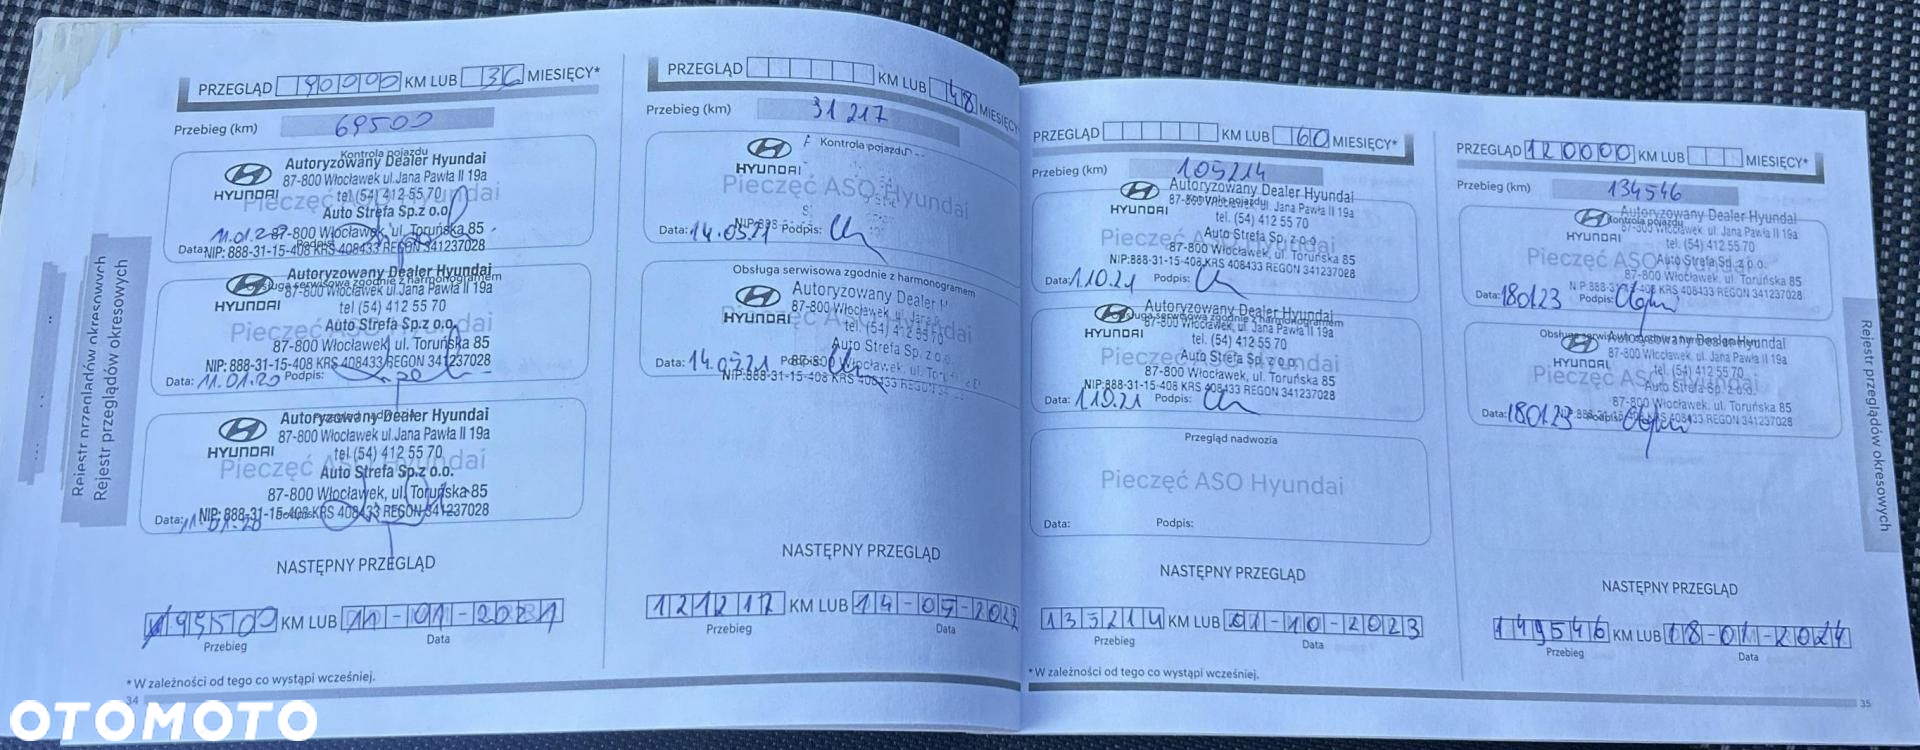 Rejestr przeglądów okresowych
Rejestr przeglądów okresowych
PRZEGLĄD 90000 KM LUB 36 MIESIĘCY*
Przebieg (km) 69500
Kontrola pojazdu
Autoryzowany Dealer Hyundai
87-800 Włocławek ul.Jana Pawła II 19a
HYUNDAI
tel (54) 412 55 70
Pieczęć ASO Hyundai
Auto Strefa Sp.z o.o.
87-800 Włocławek, ul. Toruńska 85
Data: Podpis
NIP: 888-31-15-408 KRS 408433 REGON 341237028
Autoryzowany Dealer Hyundai
Obsługa serwisowa zgodnie z harmonogramem
87-800 Włocławek ul.Jana Pawła II 19a
HYUNDAI
tel (54) 412 55 70
Pieczęć ASO Hyundai
Auto Strefa Sp.z o.o.
87-800 Włocławek, ul. Toruńska 85
NIP: 888-31-15-408 KRS 408433 REGON 341237028
Data: 11.01.20 Podpis:
Przegląd nadwozia
Autoryzowany Dealer Hyundai
87-800 Włocławek ul.Jana Pawła II 19a
HYUNDAI
tel (54) 412 55 70
Pieczęć ASO Hyundai
Auto Strefa Sp.z o.o.
87-800 Włocławek, ul. Toruńska 85
NIP: 888-31-15-408 KRS 408433 REGON 341237028
Data: 11.01.20 Podpis:
NASTĘPNY PRZEGLĄD
99500 KM LUB 11-01-2021
Przebieg Data
* W zależności od tego co wystąpi wcześniej.
34
PRZEGLĄD KM LUB 48 MIESIĘCY*
Przebieg (km) 31 217
Kontrola pojazdu
HYUNDAI
Pieczęć ASO Hyundai
NIP:888
Data: Podpis:
Obsługa serwisowa zgodnie z harmonogramem
Autoryzowany Dealer
87-800 Włocławek, ul. Jana
HYUNDAI
tel. (54) 412 55 70
Pieczęć ASO Hyundai
Auto Strefa Sp. z o.o.
87-800 Włocławek, ul.
Data: Podpis:
NIP:888-31-15-408 KRS 408433 REGON
NASTĘPNY PRZEGLĄD
121217 KM LUB
Przebieg Data
PRZEGLĄD KM LUB 60 MIESIĘCY*
Przebieg (km) 105214
Autoryzowany Dealer Hyundai
Kontrola pojazdu
87-800 Włocławek, ul. Jana Pawła II 19a
HYUNDAI
tel. (54) 412 55 70
Pieczęć ASO Hyundai
Auto Strefa Sp. z o.o.
87-800 Włocławek, ul. Toruńska 85
NIP:888-31-15-408 KRS 408433 REGON 341237028
Data: 1.10.21 Podpis:
Autoryzowany Dealer Hyundai
Obsługa serwisowa zgodnie z harmonogramem
87-800 Włocławek, ul. Jana Pawła II 19a
HYUNDAI
tel. (54) 412 55 70
Pieczęć ASO Hyundai
Auto Strefa Sp. z o.o.
87-800 Włocławek, ul. Toruńska 85
NIP:888-31-15-408 KRS 408433 REGON 341237028
Data: 1.10.21 Podpis:
Przegląd nadwozia
Pieczęć ASO Hyundai
Data: Podpis:
NASTĘPNY PRZEGLĄD
135214 KM LUB 01-10-2023
Przebieg Data
* W zależności od tego co wystąpi wcześniej.
PRZEGLĄD 120000 KM LUB MIESIĘCY*
Przebieg (km) 134546
Autoryzowany Dealer Hyundai
Kontrola pojazdu
87-800 Włocławek, ul. Jana Pawła II 19a
HYUNDAI
tel. (54) 412 55 70
Pieczęć ASO Hyundai
Auto Strefa Sp. z o.o.
87-800 Włocławek, ul. Toruńska 85
NIP:888-31-15-408 KRS 408433 REGON 341237028
Data: 180123 Podpis:
Obsługa serwisowa zgodnie z harmonogramem
Autoryzowany Dealer Hyundai
87-800 Włocławek, ul. Jana Pawła II 19a
HYUNDAI
tel. (54) 412 55 70
Pieczęć ASO Hyundai
Auto Strefa Sp. z o.o.
87-800 Włocławek, ul. Toruńska 85
NIP:888-31-15-408 KRS 408433 REGON 341237028
Data: 180123 Podpis:
NASTĘPNY PRZEGLĄD
149546 KM LUB 18-01-2024
Przebieg Data
35
Rejestr przeglądów okresowych
OTOMOTO